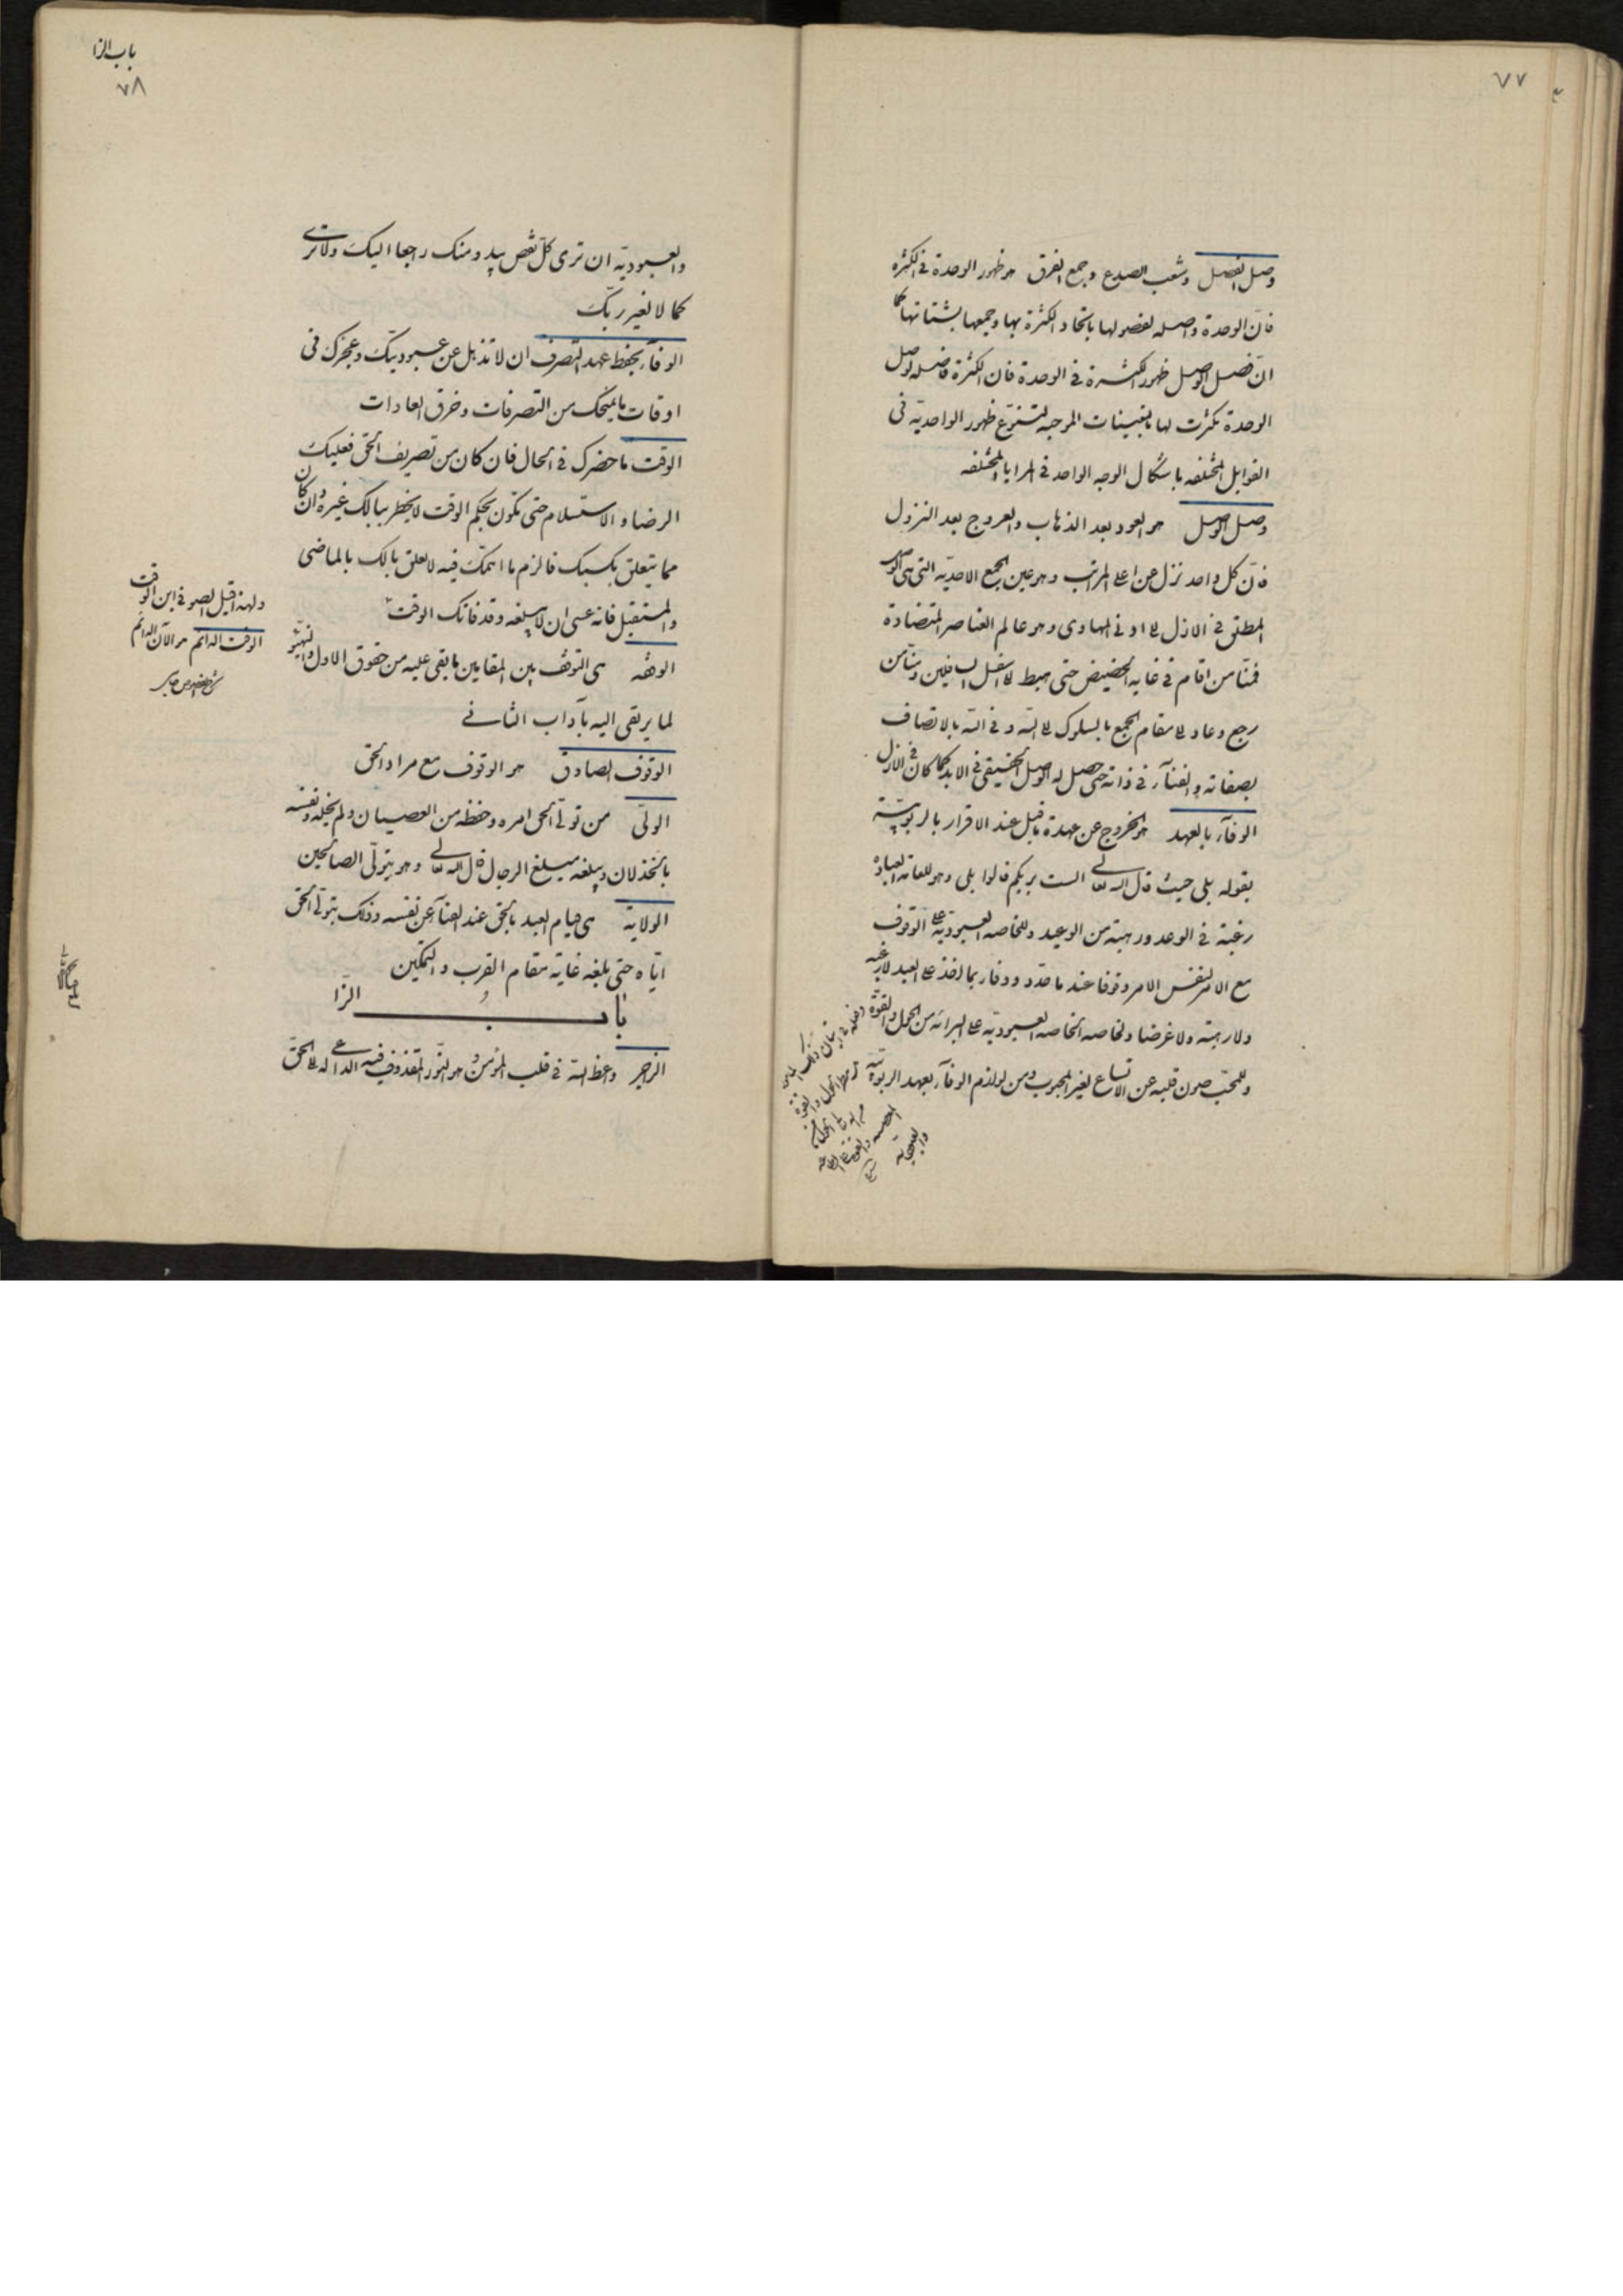 ٧٧
وصل الفصل وشعب الصدع وجمع الفرق هو ظهور الوحدة فى الكثرة
فانّ الوحدة واصله لفصولها باتحاد الكثرة بها وجمعها لشتاتها كما
انّ فصل الوصل ظهور الكثرة فى الوحدة فان الكثرة فاصله لوصل
الوحدة تكثرت لها بالتعينات الموجبه لتنوّع ظهور الواحديّه فى
القوابل المختلفه باشكال الوجه الواحد فى المرايا المختلفه
وصل الوصل هو العود بعد الذهاب والعروج بعد النزول
فانّ كل واحد نزل عن اعلى المراتب وهو عين الجمع الاحديّه التى هى الوصل
المطلق فى الازل الى ادنى المهاوى وهو عالم العناصر المتضادة
فمنّا من اقام فى غايه الحضيض حتى هبط الى اسفل السافلين ومنّا من
رجع وعاد الى مقام الجمع بالسلوك الى الله وفى الله بالاتصاف
بصفاته والفنآء فى ذاته حتى حصل له الوصل الحقيقى فى الابد كما كان فى الازل
الوفآء بالعهد هو الخروج عن عهدة ما قيل عند الاقرار بالربوبيّة
بقوله بلى حيث قال الله تعالى الست بربكم قالوا بلى وهو للعامه العباده
رغبة فى الوعد ورهبة من الوعيد وللخاصه العبوديّة على الوقوف
مع الامر لنفس الامر وقوفا عند ما حدّد ووفاء بما اخذ على العبد لا رغبة
ولا رهبة ولا غرضا ولخاصه الخاصه العبوديّه على البرائه من الحول والقوّة
وللمحبّ صون قلبه عن الاتساع لغير المحبوب ومن لوازم الوفآء بعهد الربوبيّة
والعبودية
باب الزا
٧٨
والعبوديّة ان ترى كلّ نقص يبدو منك راجعا اليك ولا ترى
كمالا لغير ربّك
الوفآء بحفظ عهد التصرف ان لا تذهل عن عبوديتك وعجزك فى
اوقات ما يمنحك من التصرفات وخرق العادات
الوقت ما حضرك فى الحال فان كان من تصريف الحق فعليك
الرضا والاستسلام حتى تكون بحكم الوقت لا يخطر ببالك غيره وان كان
مما يتعلق بكسبك فالزم ما اهمّك فيه لا تعلق بالك بالماضى
والمستقبل فانه عسى ان لا يبلغه وقد فاتك الوقت
ولهذا قيل الصوفى ابن الوقت
الوقت الدائم هو الآن الدائم
الوقفه هى التوقف بين المقامين ما بقى عليه من حقوق الاول والتهيّؤ
لما يرتقى اليه بآداب الثانى
الوقوف الصادق هو الوقوف مع مراد الحق
الولىّ من تولّى الحق امره وحفظه من العصيان ولم يخله ونفسه
بالخذلان ويبلغه مبلغ الرجال قال الله تعالى وهو يتولّى الصالحين
الولاية هى قيام العبد بالحق عند الفنآء عن نفسه وذلك بتولّى الحق
ايّاه حتى يبلغه غاية مقام القرب والتمكين
باب الزا
الزاجر واعظ الله فى قلب المؤمن وهو النّور المقذوف فيه الداعى له الى الحقّ